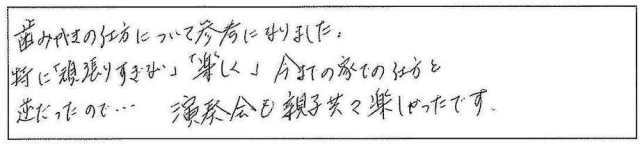 歯みがきの仕方について参考になりました。
特に「頑張りすぎない」「楽しく」今までの家での仕方と
逆だったので… 演奏会も親子共々楽しかったです。